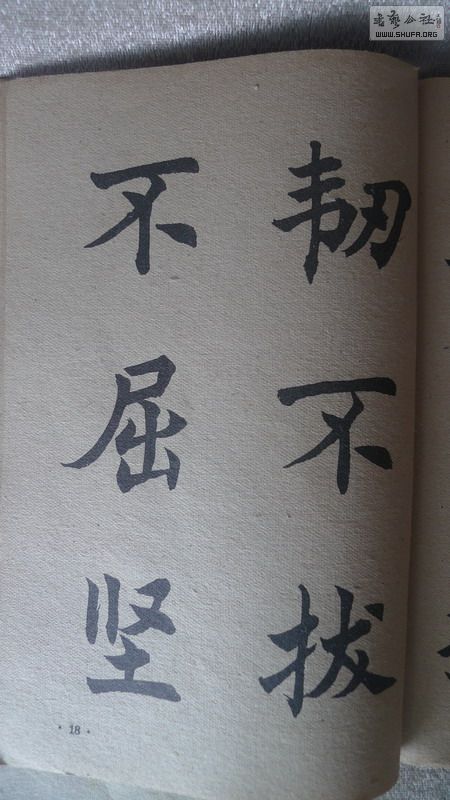 書藝公社
WWW.SHUFA.ORG
不屈坚
韧不拔
· 18 ·